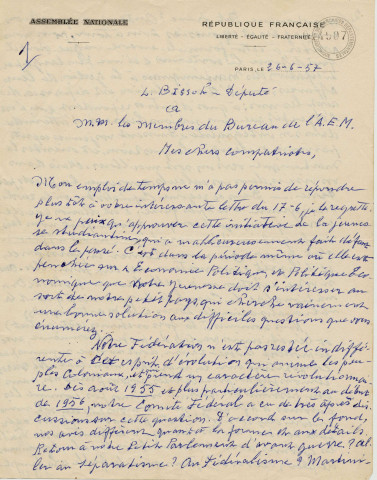 ASSEMBLÉE NATIONALE
RÉPUBLIQUE FRANÇAISE
LIBERTÉ - ÉGALITÉ - FRATERNITÉ
1
PARIS, LE 26-6-57
L. Bissol - Député
à
M.M. les Membres du Bureau de l'A.E.M.
Mes chers compatriotes,
Mon emploi de temps ne m'a pas permis de répondre
plus tôt à votre intéressante lettre du 17-6, je le regrette.
Je ne puis qu'approuver cette initiative de la jeunes-
se estudiantine qui a malheureusement fait défaut
dans le passé. C'est dans la période même où elle est
penchée sur Economie Politique et Politique Eco-
nomique que notre jeunesse doit s'intéresser au
sort de notre petit pays, qui cherche vainement
une bonne solution aux difficiles questions que vous
énumérez.
Notre Fédération n'est pas restée indiffé-
rente à cet esprit d'évolution qui anime les peu-
ples Coloniaux, et prend un caractère révolutionnai-
re. Dès août 1955 et plus particulièrement au début
de 1956, notre Comité Fédéral a eu de très âpres dis-
cussions sur cette question. D'accord sur le fond,
nos avis diffèrent quant à la forme et aux détails.
Retour à notre Petit Parlement d'avant guerre? Al-
ler au Séparatisme? Au Fédéralisme?